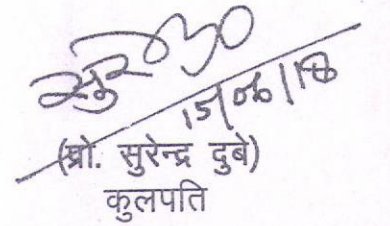 15/06/18
(प्रो. सुरेन्द्र दुबे)
कुलपति